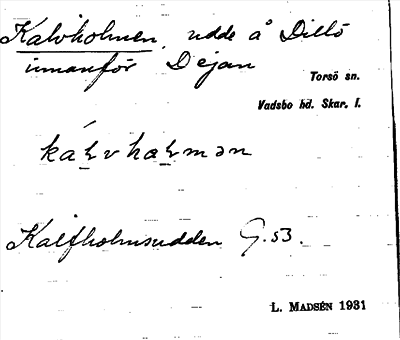 Kalvholmen, udde å Dillö
innanför Dejan
Torsö sn.
Vadsbo hd. Skar. l.
Kalfholmsudden G.53.
L. MADSÉN 1931